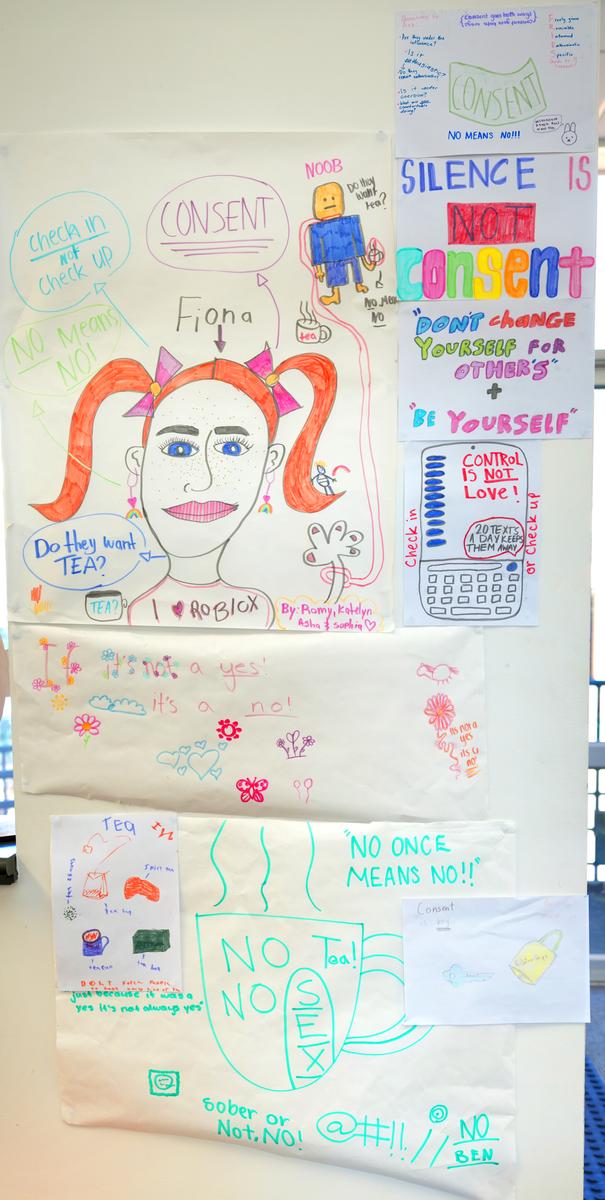 Consent goes both ways
Are they under the influence?
Is it
Is it under coercion?
Freely given
Informed
Enthusiastic
Specific
CONSENT
NO MEANS NO!!!
SILENCE IS
NOT
consent
"DON'T CHANGE
YOURSELF FOR
OTHER'S"
+
"BE YOURSELF"
CONTROL
IS NOT
Love!
20 TEXTS
A DAY KEEPS
THEM AWAY
Check in
or Check up
check in
not
check up
CONSENT
NOOB
Do they
want
tea?
NO
tea
Fiona
NO Means
NO!
Do they want
TEA?
TEA?
I ♥ ROBLOX
By: Romy, Katelyn
Asha & Sophia ♡
If it's not a yes!
it's a no!
its not a
yes
its a
no!
TEA
"NO ONCE
MEANS NO!!"
Consent
NO Tea!
NO
SEX
just because it was a
yes it's not always yes"
sober or
Not, NO!
@#!!
NO
BEN